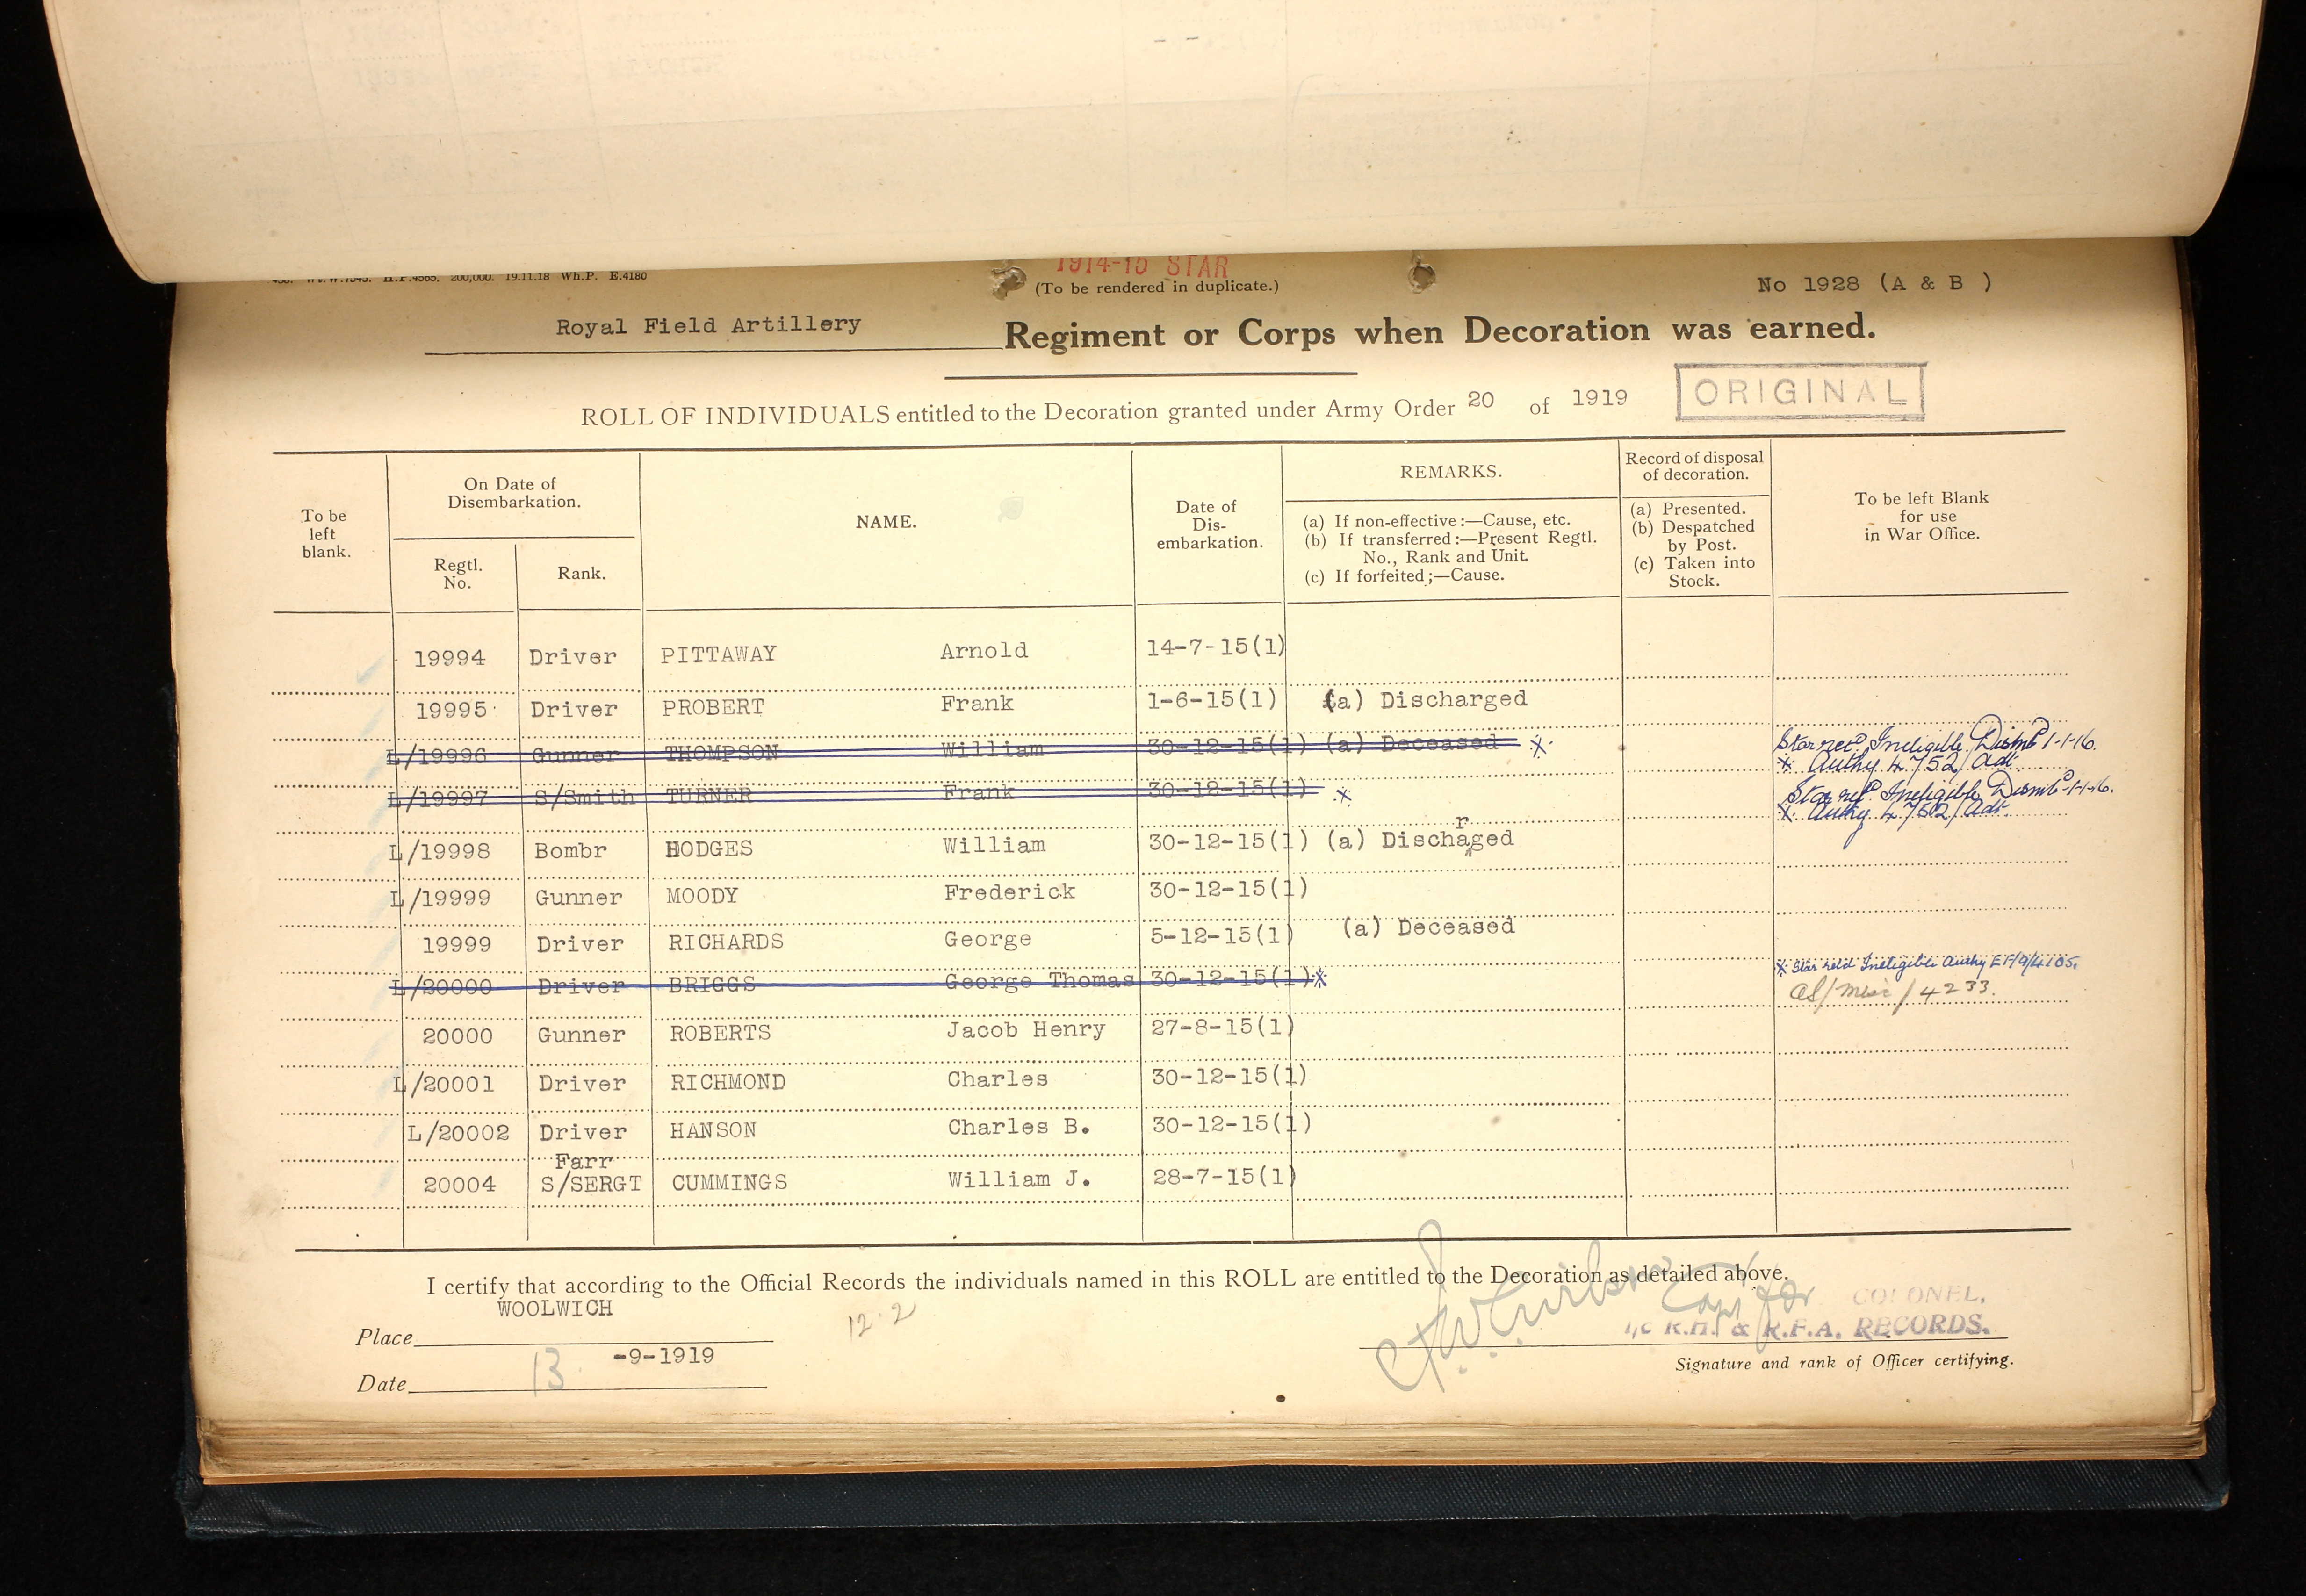 1914-15 STAR
200,000. 19.11.18 Wh.P. E.4180
(To be rendered in duplicate.)
No 1928 (A & B )
Royal Field Artillery Regiment or Corps when Decoration was earned.
ORIGINAL
ROLL OF INDIVIDUALS entitled to the Decoration granted under Army Order 20 of 1919
To be left blank.
On Date of Disembarkation.
Regtl. No.
Rank.
NAME.
Date of Dis-embarkation.
REMARKS.
(a) If non-effective:—Cause, etc.
(b) If transferred:—Present Regtl. No., Rank and Unit.
(c) If forfeited;—Cause.
Record of disposal of decoration.
(a) Presented.
(b) Despatched by Post.
(c) Taken into Stock.
To be left Blank for use in War Office.
19994 Driver PITTAWAY Arnold 14-7-15(1)
19995 Driver PROBERT Frank 1-6-15(1) (a) Discharged
L/19996 Gunner THOMPSON William 30-12-15(1) (a) Deceased * Star ret. Ineligible Disemb 1-1-16.
* Authy 4752/Adt
L/19997 S/Smith TURNER Frank 30-12-15(1) * Star ret. Ineligible Disemb 1-1-16.
* Authy 4752/Adt.
L/19998 Bombr HODGES William 30-12-15(1) (a) Discharged
L/19999 Gunner MOODY Frederick 30-12-15(1)
19999 Driver RICHARDS George 5-12-15(1) (a) Deceased
L/20000 Driver BRIGGS George Thomas 30-12-15(1)* * Star held Ineligible Authy EF/9/4105.
/ Misc / 4233.
20000 Gunner ROBERTS Jacob Henry 27-8-15(1)
L/20001 Driver RICHMOND Charles 30-12-15(1)
L/20002 Driver HANSON Charles B. 30-12-15(1)
20004 Farr S/SERGT CUMMINGS William J. 28-7-15(1)
I certify that according to the Official Records the individuals named in this ROLL are entitled to the Decoration as detailed above.
Place WOOLWICH
12.2
Capt for COLONEL,
I/C R.H. & R.F.A. RECORDS.
Signature and rank of Officer certifying.
Date 13 -9-1919